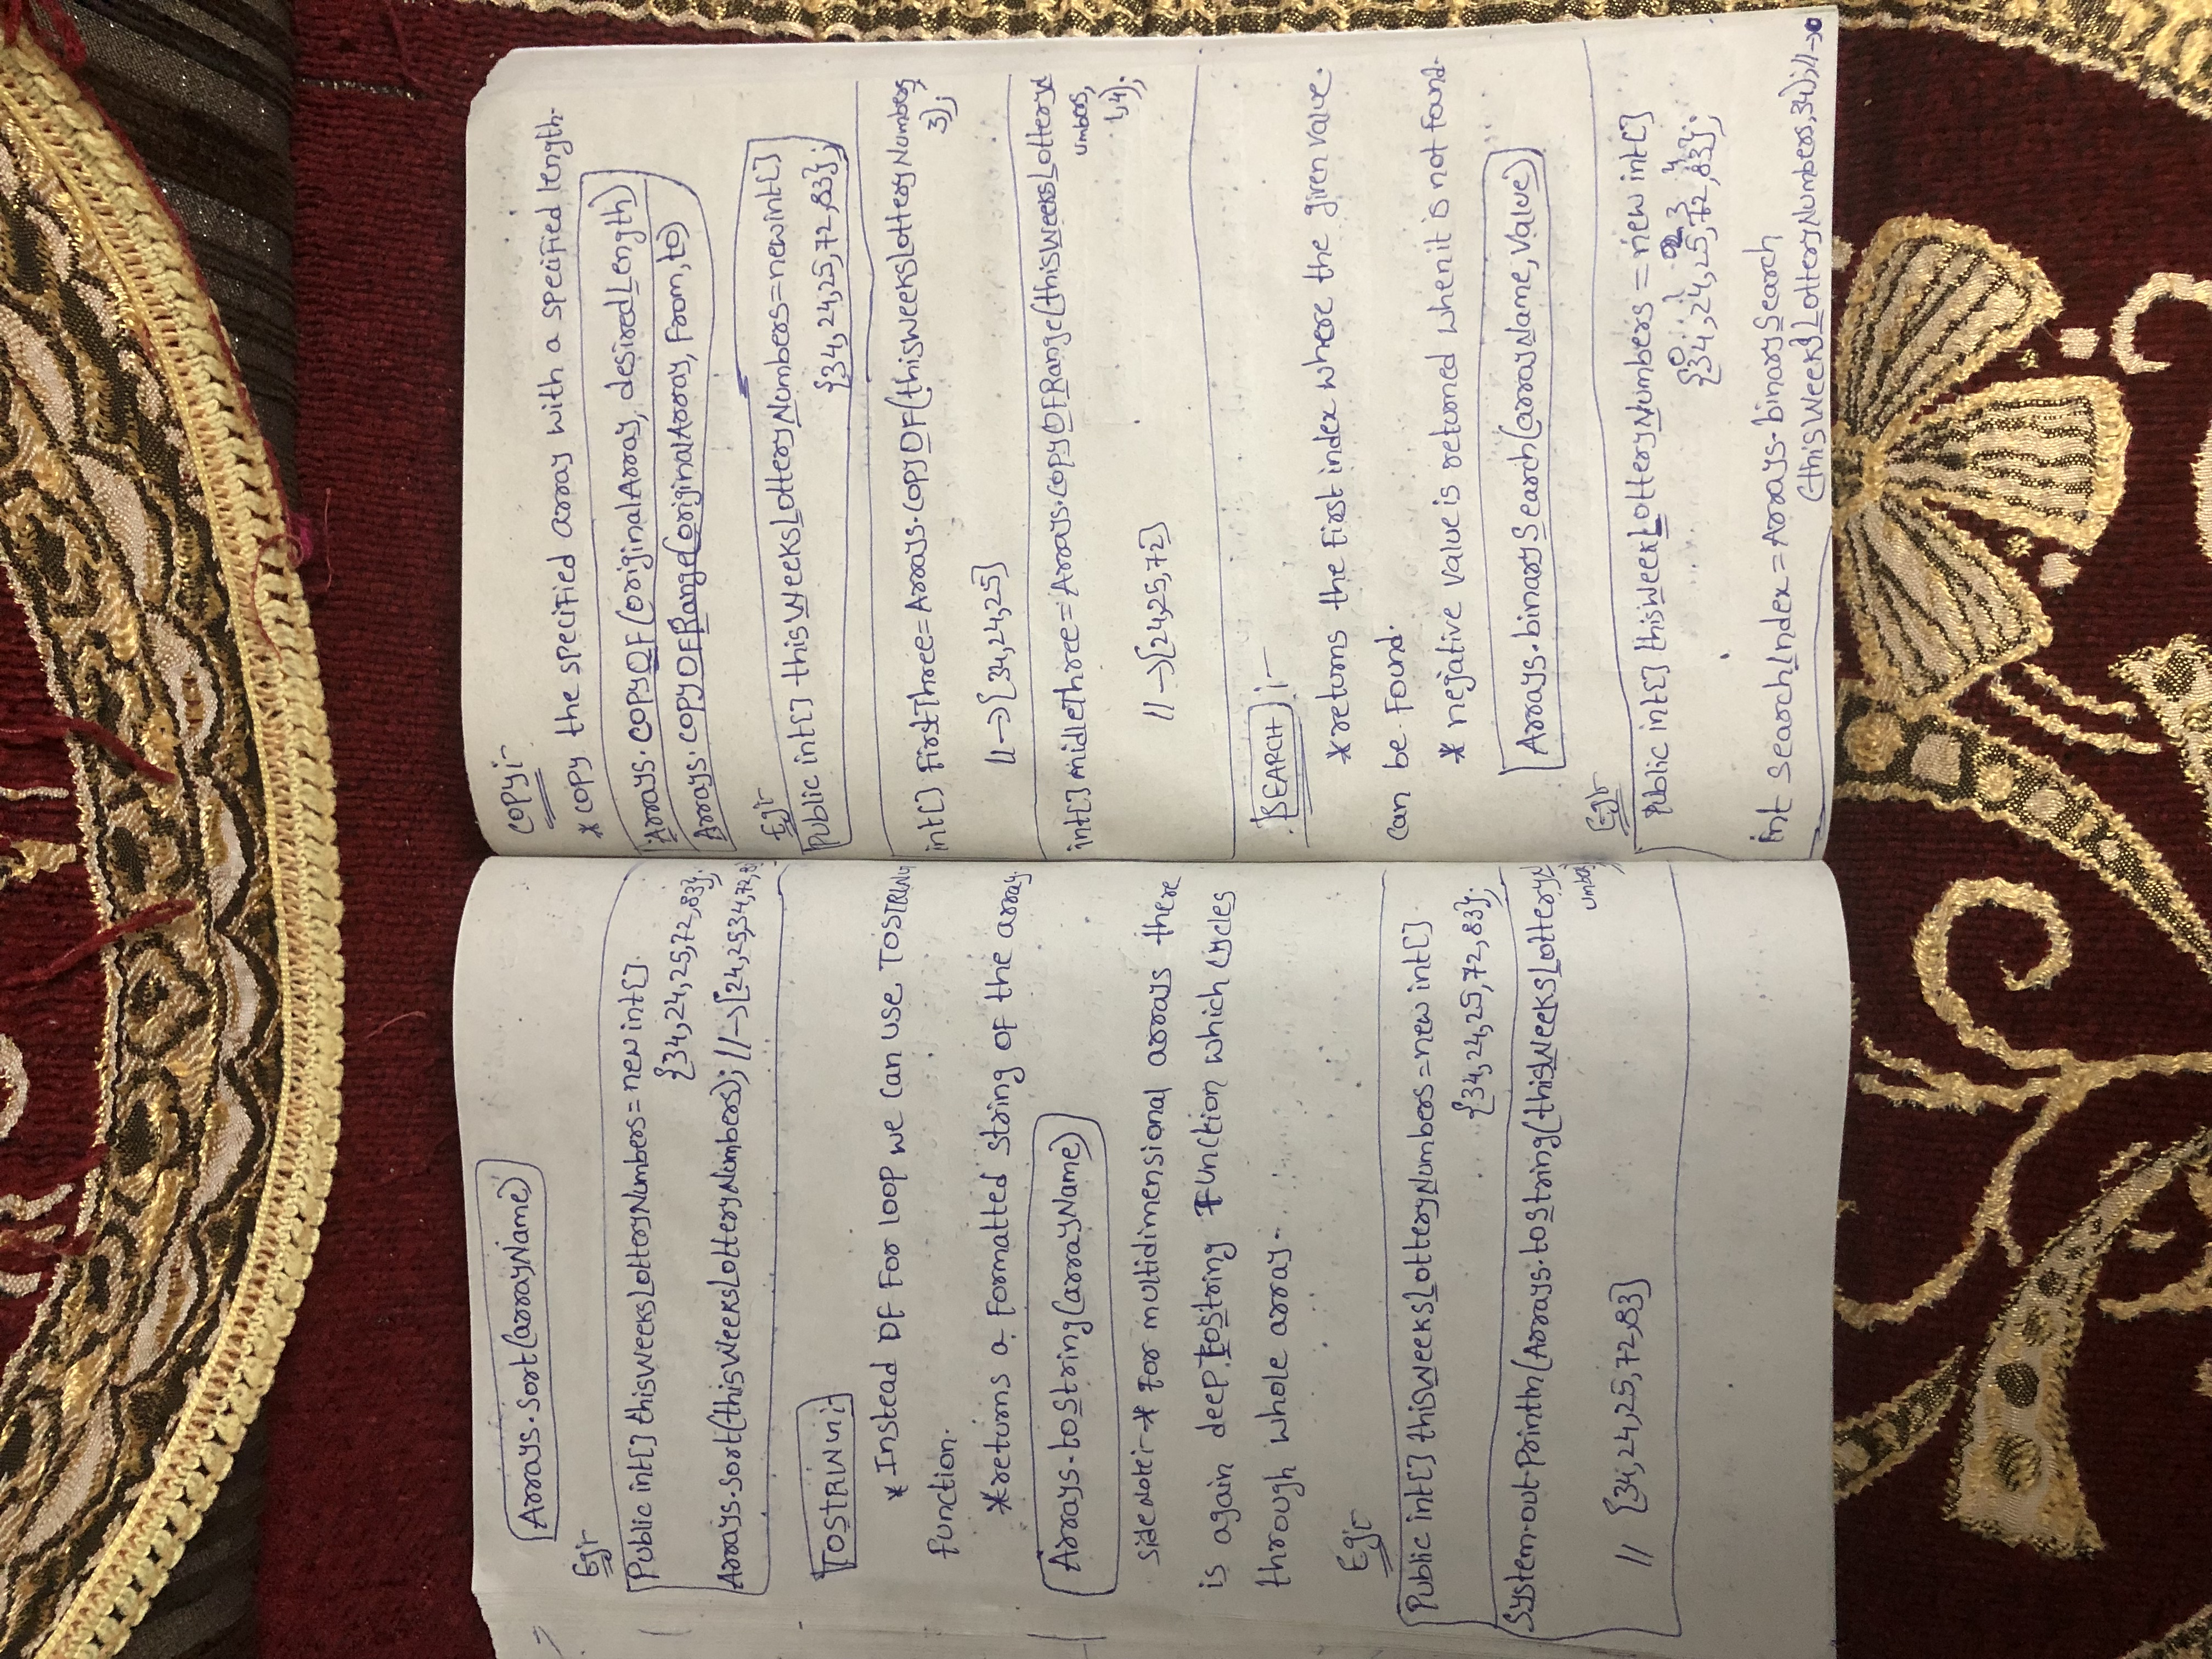 Arrays.sort(arrayName)
Eg:-
Public int[] thisWeeksLotteryNumbers = new int[]
{34,24,25,72,83};
Arrays.sort(thisWeeksLotteryNumbers); //→[24,25,34,72,8
TOSTRING:-
* Instead OF For loop we can use TOSTRING
function.
*returns a Formatted string of the array.
Arrays.toString(arrayName)
sideNote:-* For multidimensional arrays there
is again deep toString Function which cycles
through whole array.
Eg:-
Public int[] thisWeeksLotteryNumbers = new int[]
{34,24,25,72,83};
System.out.Println(Arrays.toString(thisWeeksLotteryN
umbers)
// {34,24,25,72,83}
COPY:-
* COPY the specified array with a specified length.
Arrays.COPYOF(originalArray, desiredLength)
Arrays.COPYOFRange(originalArray, From, to)
Eg:-
Public int[] thisWeeksLotteryNumbers = new int[]
{34, 24,25,72,83};
int[] firstThree = Arrays.COPYOF(thisWeeksLotteryNumbers,
3);
//→{34,24,25]
int[] midleThree = Arrays.COPYOFRange(thisWeeksLotteryN
umbers,
1,4);
//→[24,25,72]
SEARCH :-
*returns the First index where the given value.
can be Found.
* negative value is returned when it is not found.
Arrays.binarySearch(arrayName, value)
Eg:-
Public int[] thisWeekLotteryNumbers = new int[]
0 1 2 3 4
{34,24,25,72,83};
int searchIndex = Arrays.binarySearch
(thisWeeksLotteryNumbers,34); //→0